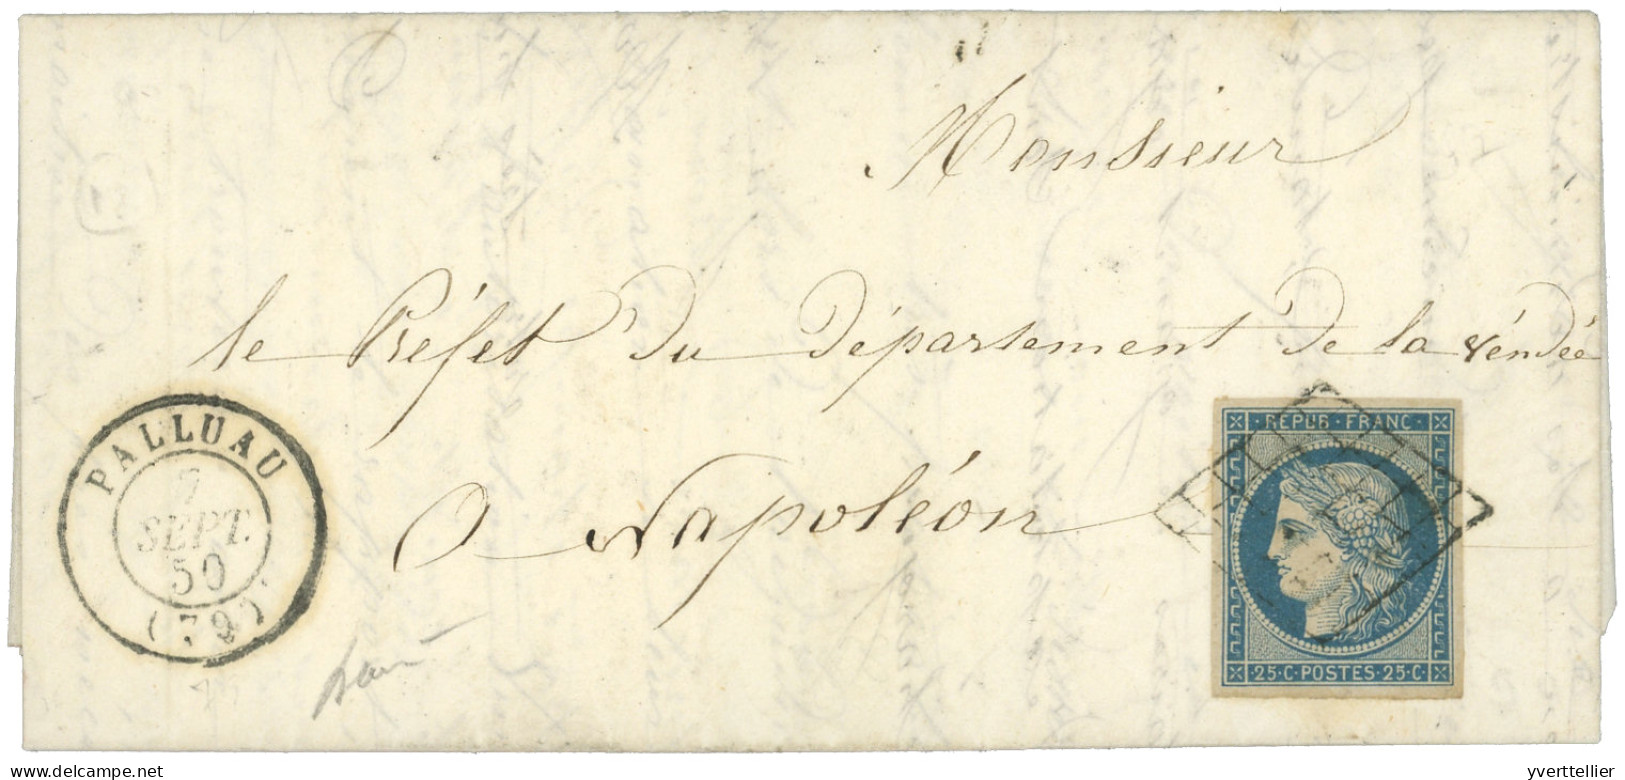 Monsieur
le Préfet du département de la vendée
a Napoléon
PALLUAU
7
SEPT.
50
(79)
REPUB·FRANC·
25·C·POSTES·25·C·
delcampe.net
yverttellier